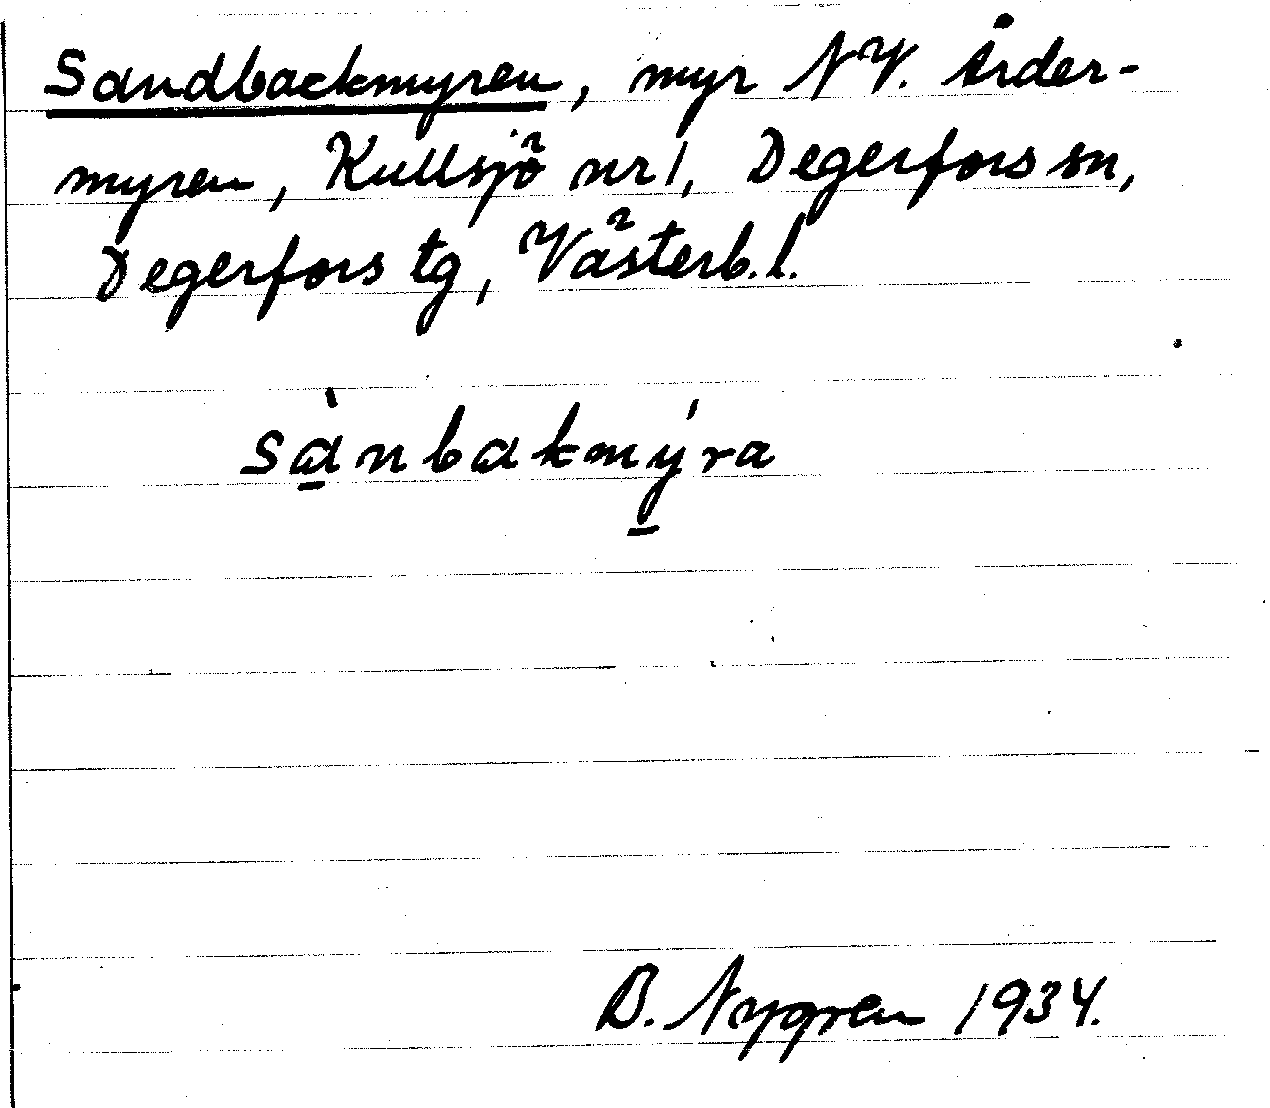 Sandbackmyren, myr NV. Årder-
myren, Kullsjö nr 1, Degerfors sn,
Degerfors tg, Västerb.l.
sà̲nbakmý̲ra
B. Nygren 1934.